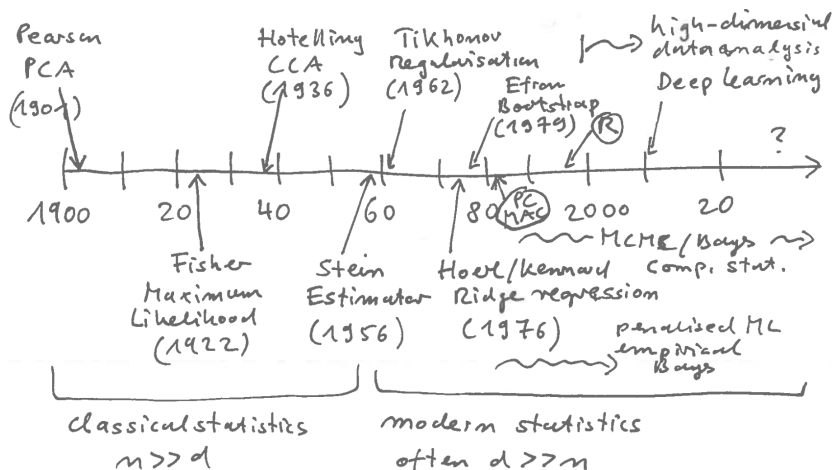 Pearson
PCA
(1901)
Hotelling
CCA
(1936)
Tikhonov
Regularisation
(1962)
Efron
Bootstrap
(1979)
R
high-dimensional
data analysis
Deep learning
?
1900
20
40
60
80
2000
20
PC
MAC
Fisher
Maximum
Likelihood
(1922)
Stein
Estimator
(1956)
Hoerl/Kennard
Ridge regression
(1976)
MCMC/Bayes
Comp. stat.
penalised ML
empirical
Bayes
classical statistics
n>>d
modern statistics
often d>>n